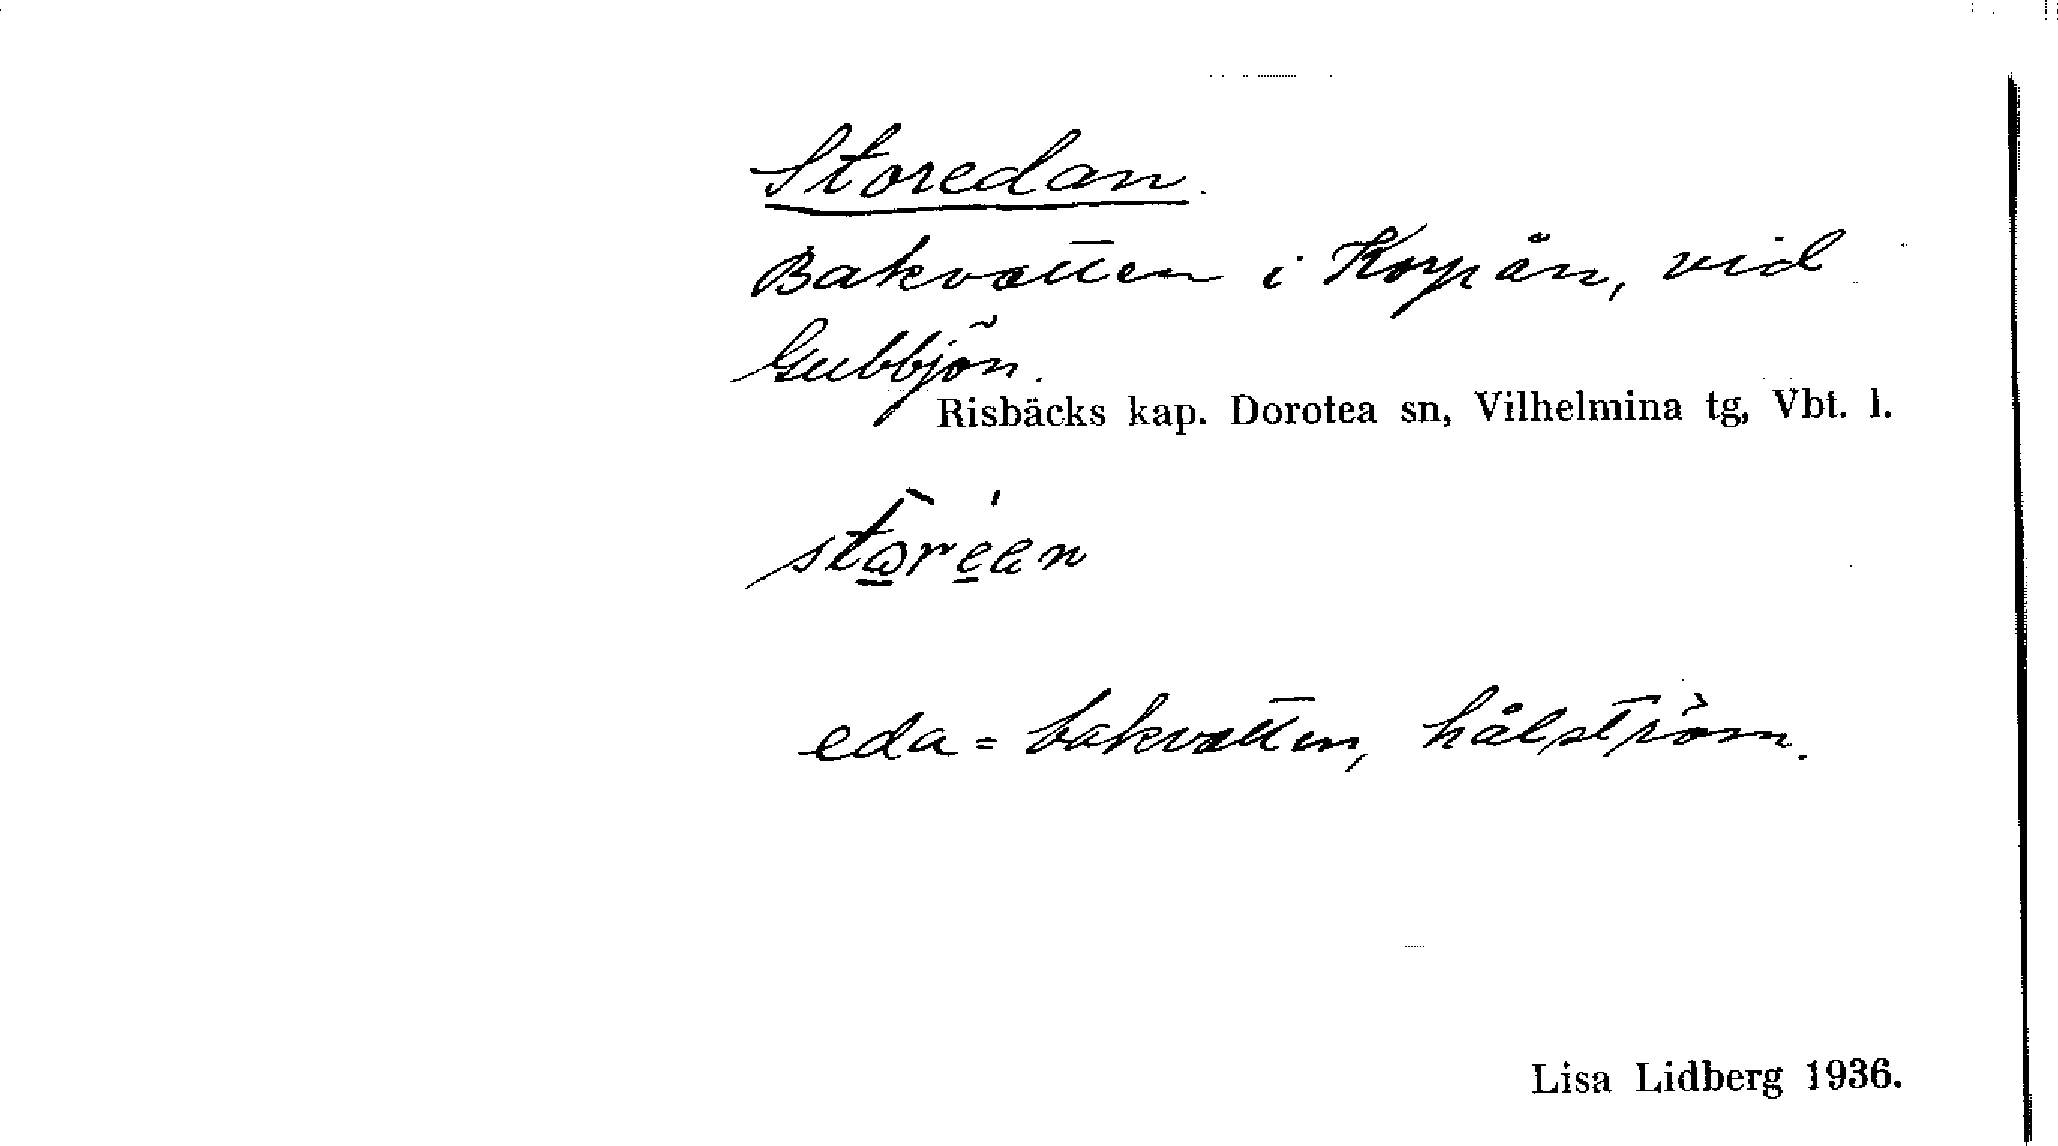 Storedan.
Bakvatten i Korpån, vid
Gubbjön.
Risbäcks kap. Dorotea sn, Vilhelmina tg, Vbt. l.
eda = bakvatten, hålström.
Lisa Lidberg 1936.